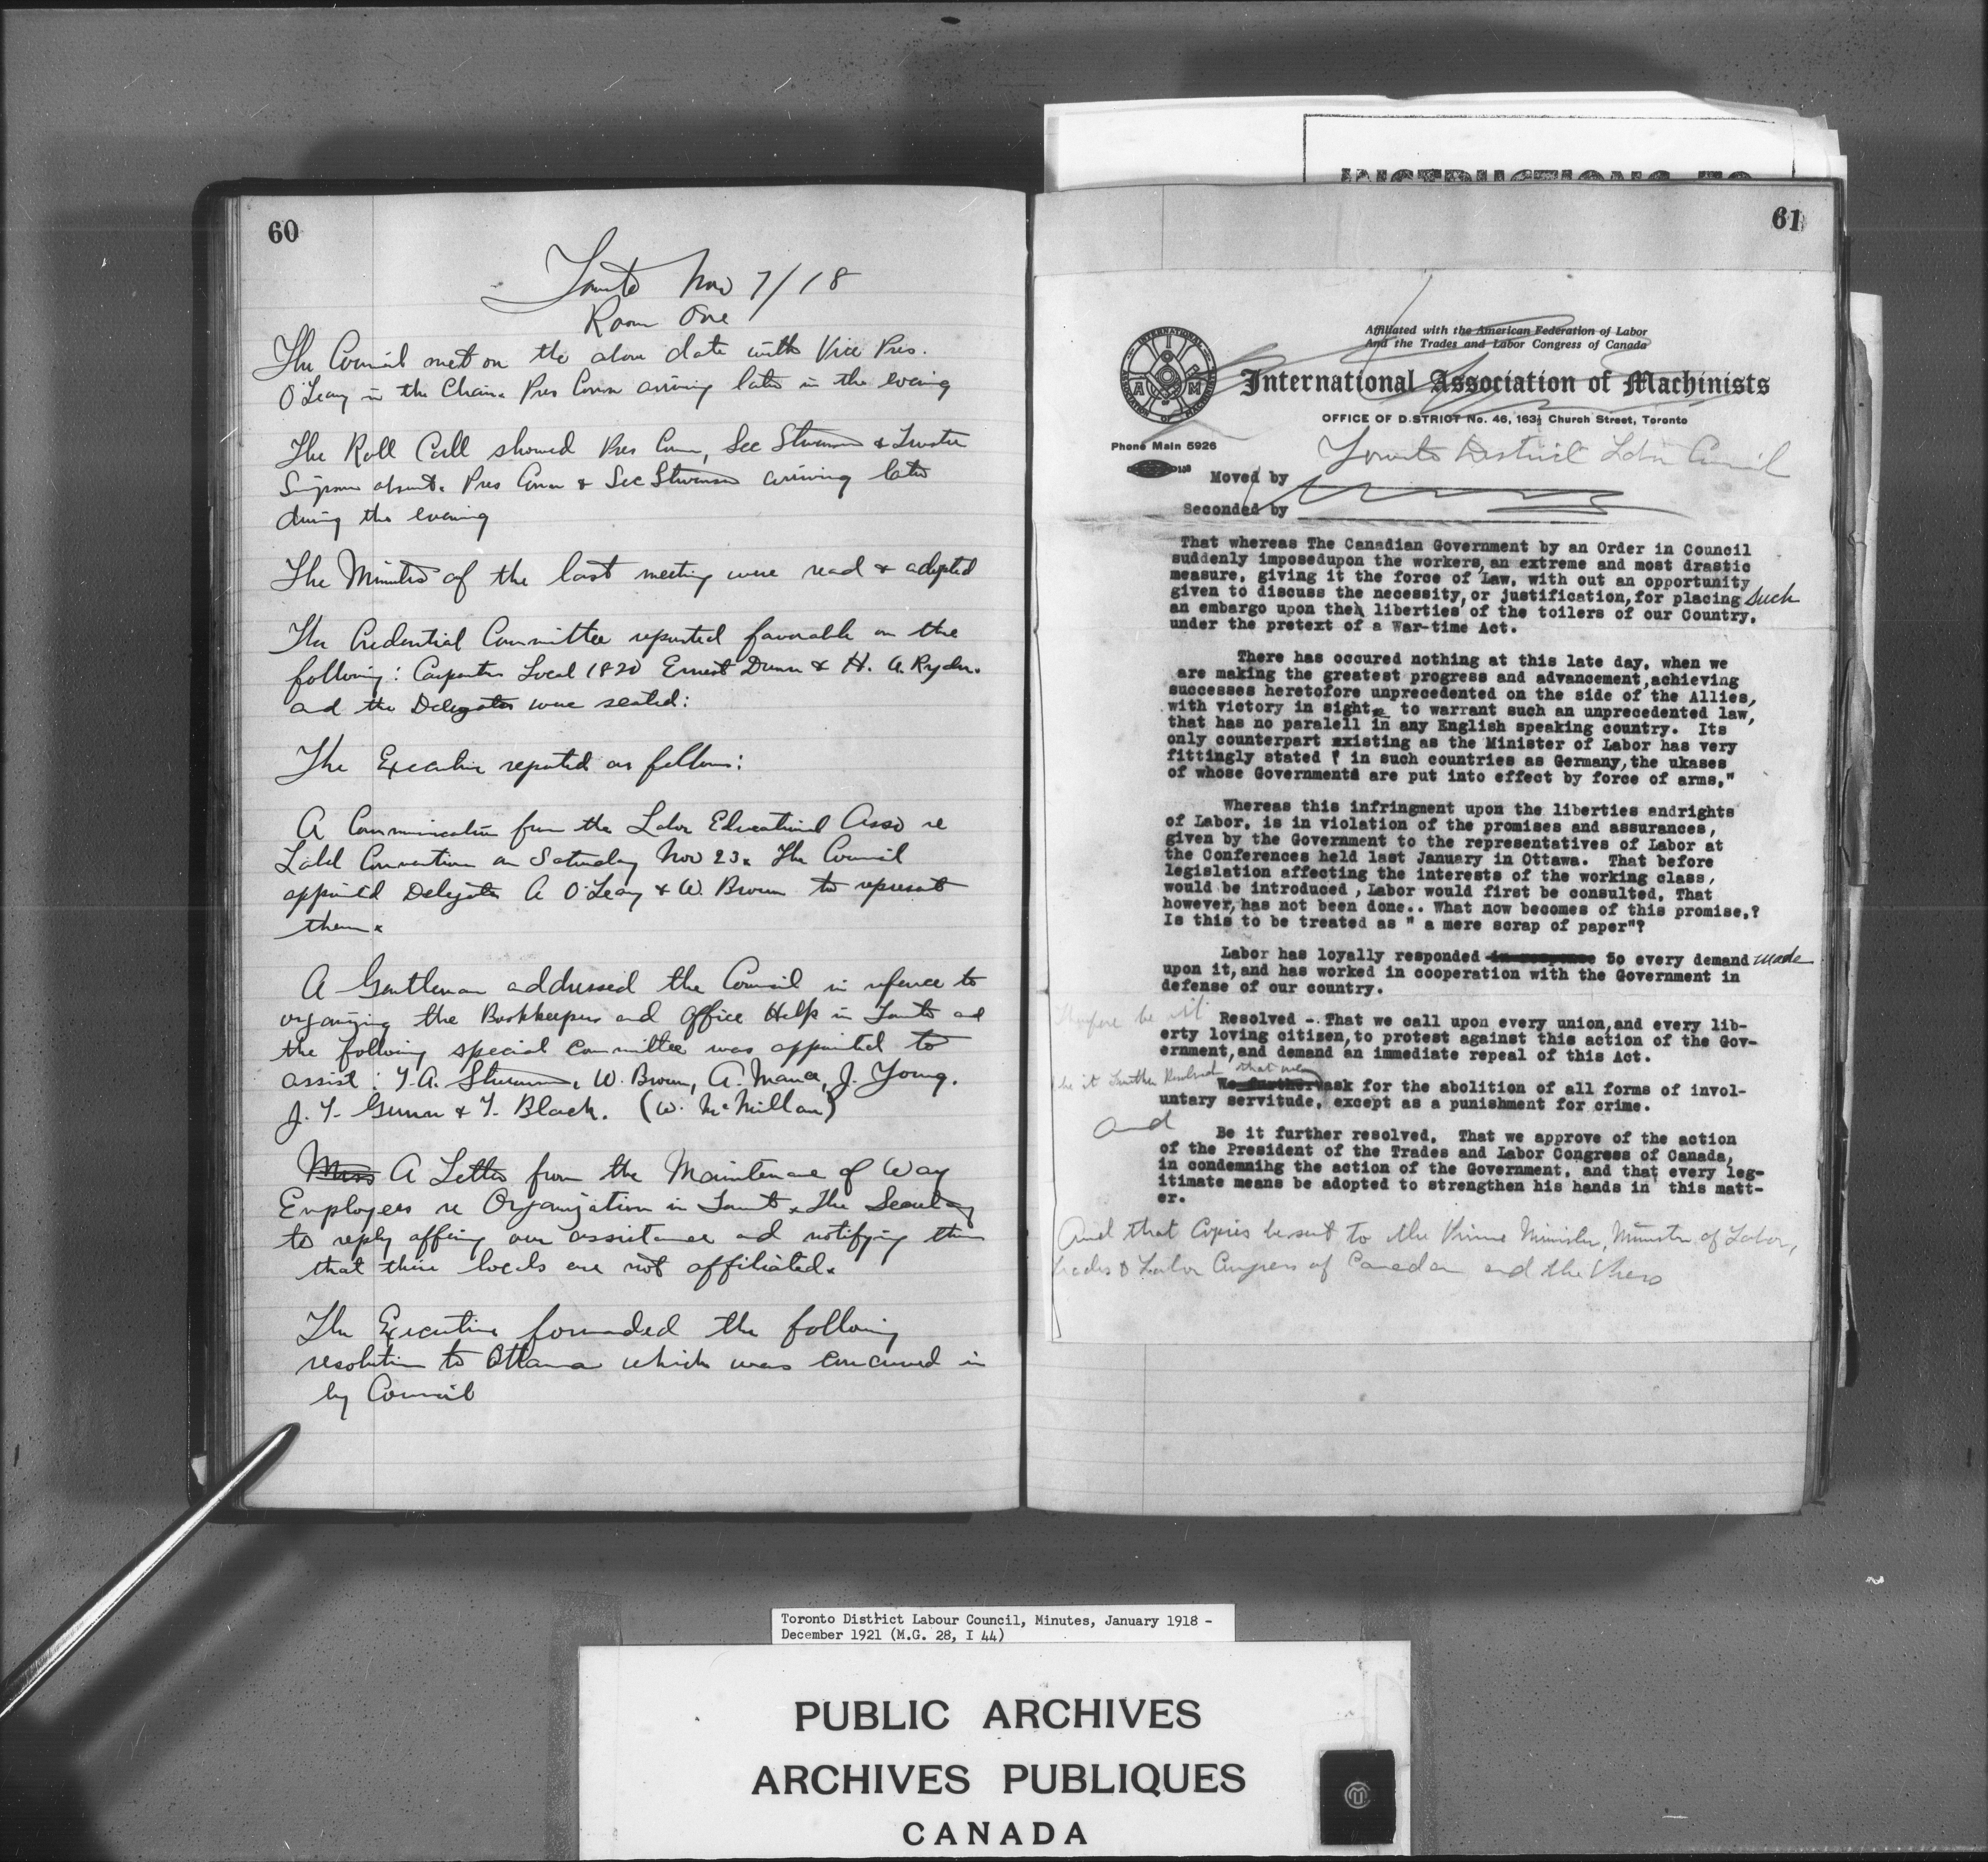 60
Toronto Nov 7/18
Room One
The Council met on the above date with Vice Pres.
O'Leary in the Chair. Pres Conn arriving later in the evening
The Roll Call showed Pres Conn, Sec Stevenson & Trustee
Simpson absent. Pres Conn & Sec Stevenson arriving later
during the evening
The Minutes of the last meeting were read & adopted
The Credential Committee reported favorable on the
following: Carpenters Local 1820 Ernest Dunn & H. A. Ryder.
and the Delegates were seated:
The Executive reported as follows:
A Communication from the Labor Educational Asso re
Label Convention on Saturday Nov 23. The Council
appointed Delegates A O'Leary & W. Brown to represent
them.
A Gentleman addressed the Council in refence to
organizing the Bookkeepers and Office Help in Toronto and
the following special committee was appointed to
assist: T. A. Stevenson, W. Brown, A. Mance, J. Young.
J. T. Gunn & T. Black. (W. McMillan)
A Letter from the Maintenance of Way
Employees re Organization in Toronto. The Secretary
to reply offering our assistance and notifying them
that their locals are not affiliated.
The Executive forwarded the following
resolution to Ottawa which was concurred in
by Council
INSTRUCTIONS TO
61
Affiliated with the American Federation of Labor
And the Trades and Labor Congress of Canada
INTERNATIONAL ASSOCIATION OF MACHINISTS
I A M
International Association of Machinists
OFFICE OF D.STRICT No. 46, 163½ Church Street, Toronto
Phone Main 5926
Toronto District Labor Council
Moved by
Seconded by
That whereas The Canadian Government by an Order in Council
suddenly imposedupon the workers, an extreme and most drastic
measure, giving it the force of Law, with out an opportunity
given to discuss the necessity, or justification, for placing such
an embargo upon the liberties of the toilers of our Country,
under the pretext of a War-time Act.
There has occured nothing at this late day, when we
are making the greatest progress and advancement,achieving
successes heretofore unprecedented on the side of the Allies,
with victory in sight, to warrant such an unprecedented law,
that has no paralell in any English speaking country. Its
only counterpart existing as the Minister of Labor has very
fittingly stated " in such countries as Germany,the ukases
of whose Governments are put into effect by force of arms,"
Whereas this infringment upon the liberties andrights
of Labor, is in violation of the promises and assurances,
given by the Government to the representatives of Labor at
the Conferences held last January in Ottawa. That before
legislation affecting the interests of the working class,
would be introduced , Labor would first be consulted. That
however, has not been done.. What now becomes of this promise,?
Is this to be treated as " a mere scrap of paper"?
Labor has loyally responded in response to every demand made
upon it, and has worked in cooperation with the Government in
defense of our country.
Therefore be it Resolved -. That we call upon every union,and every lib-
erty loving citizen,to protest against this action of the Gov-
ernment,and demand an immediate repeal of this Act.
be it Further Resolved that we
We further ask for the abolition of all forms of invol-
untary servitude, except as a punishment for crime.
and
Be it further resolved, That we approve of the action
of the President of the Trades and Labor Congress of Canada,
in condemnihg the action of the Government, and that every leg-
itimate means be adopted to strengthen his hands in this matt-
er.
And that Copies be sent to the Prime Minister, Minister of Labor,
Trades & Labor Congress of Canada and the Press
Toronto District Labour Council, Minutes, January 1918 -
December 1921 (M.G. 28, I 44)
PUBLIC ARCHIVES
ARCHIVES PUBLIQUES
CANADA